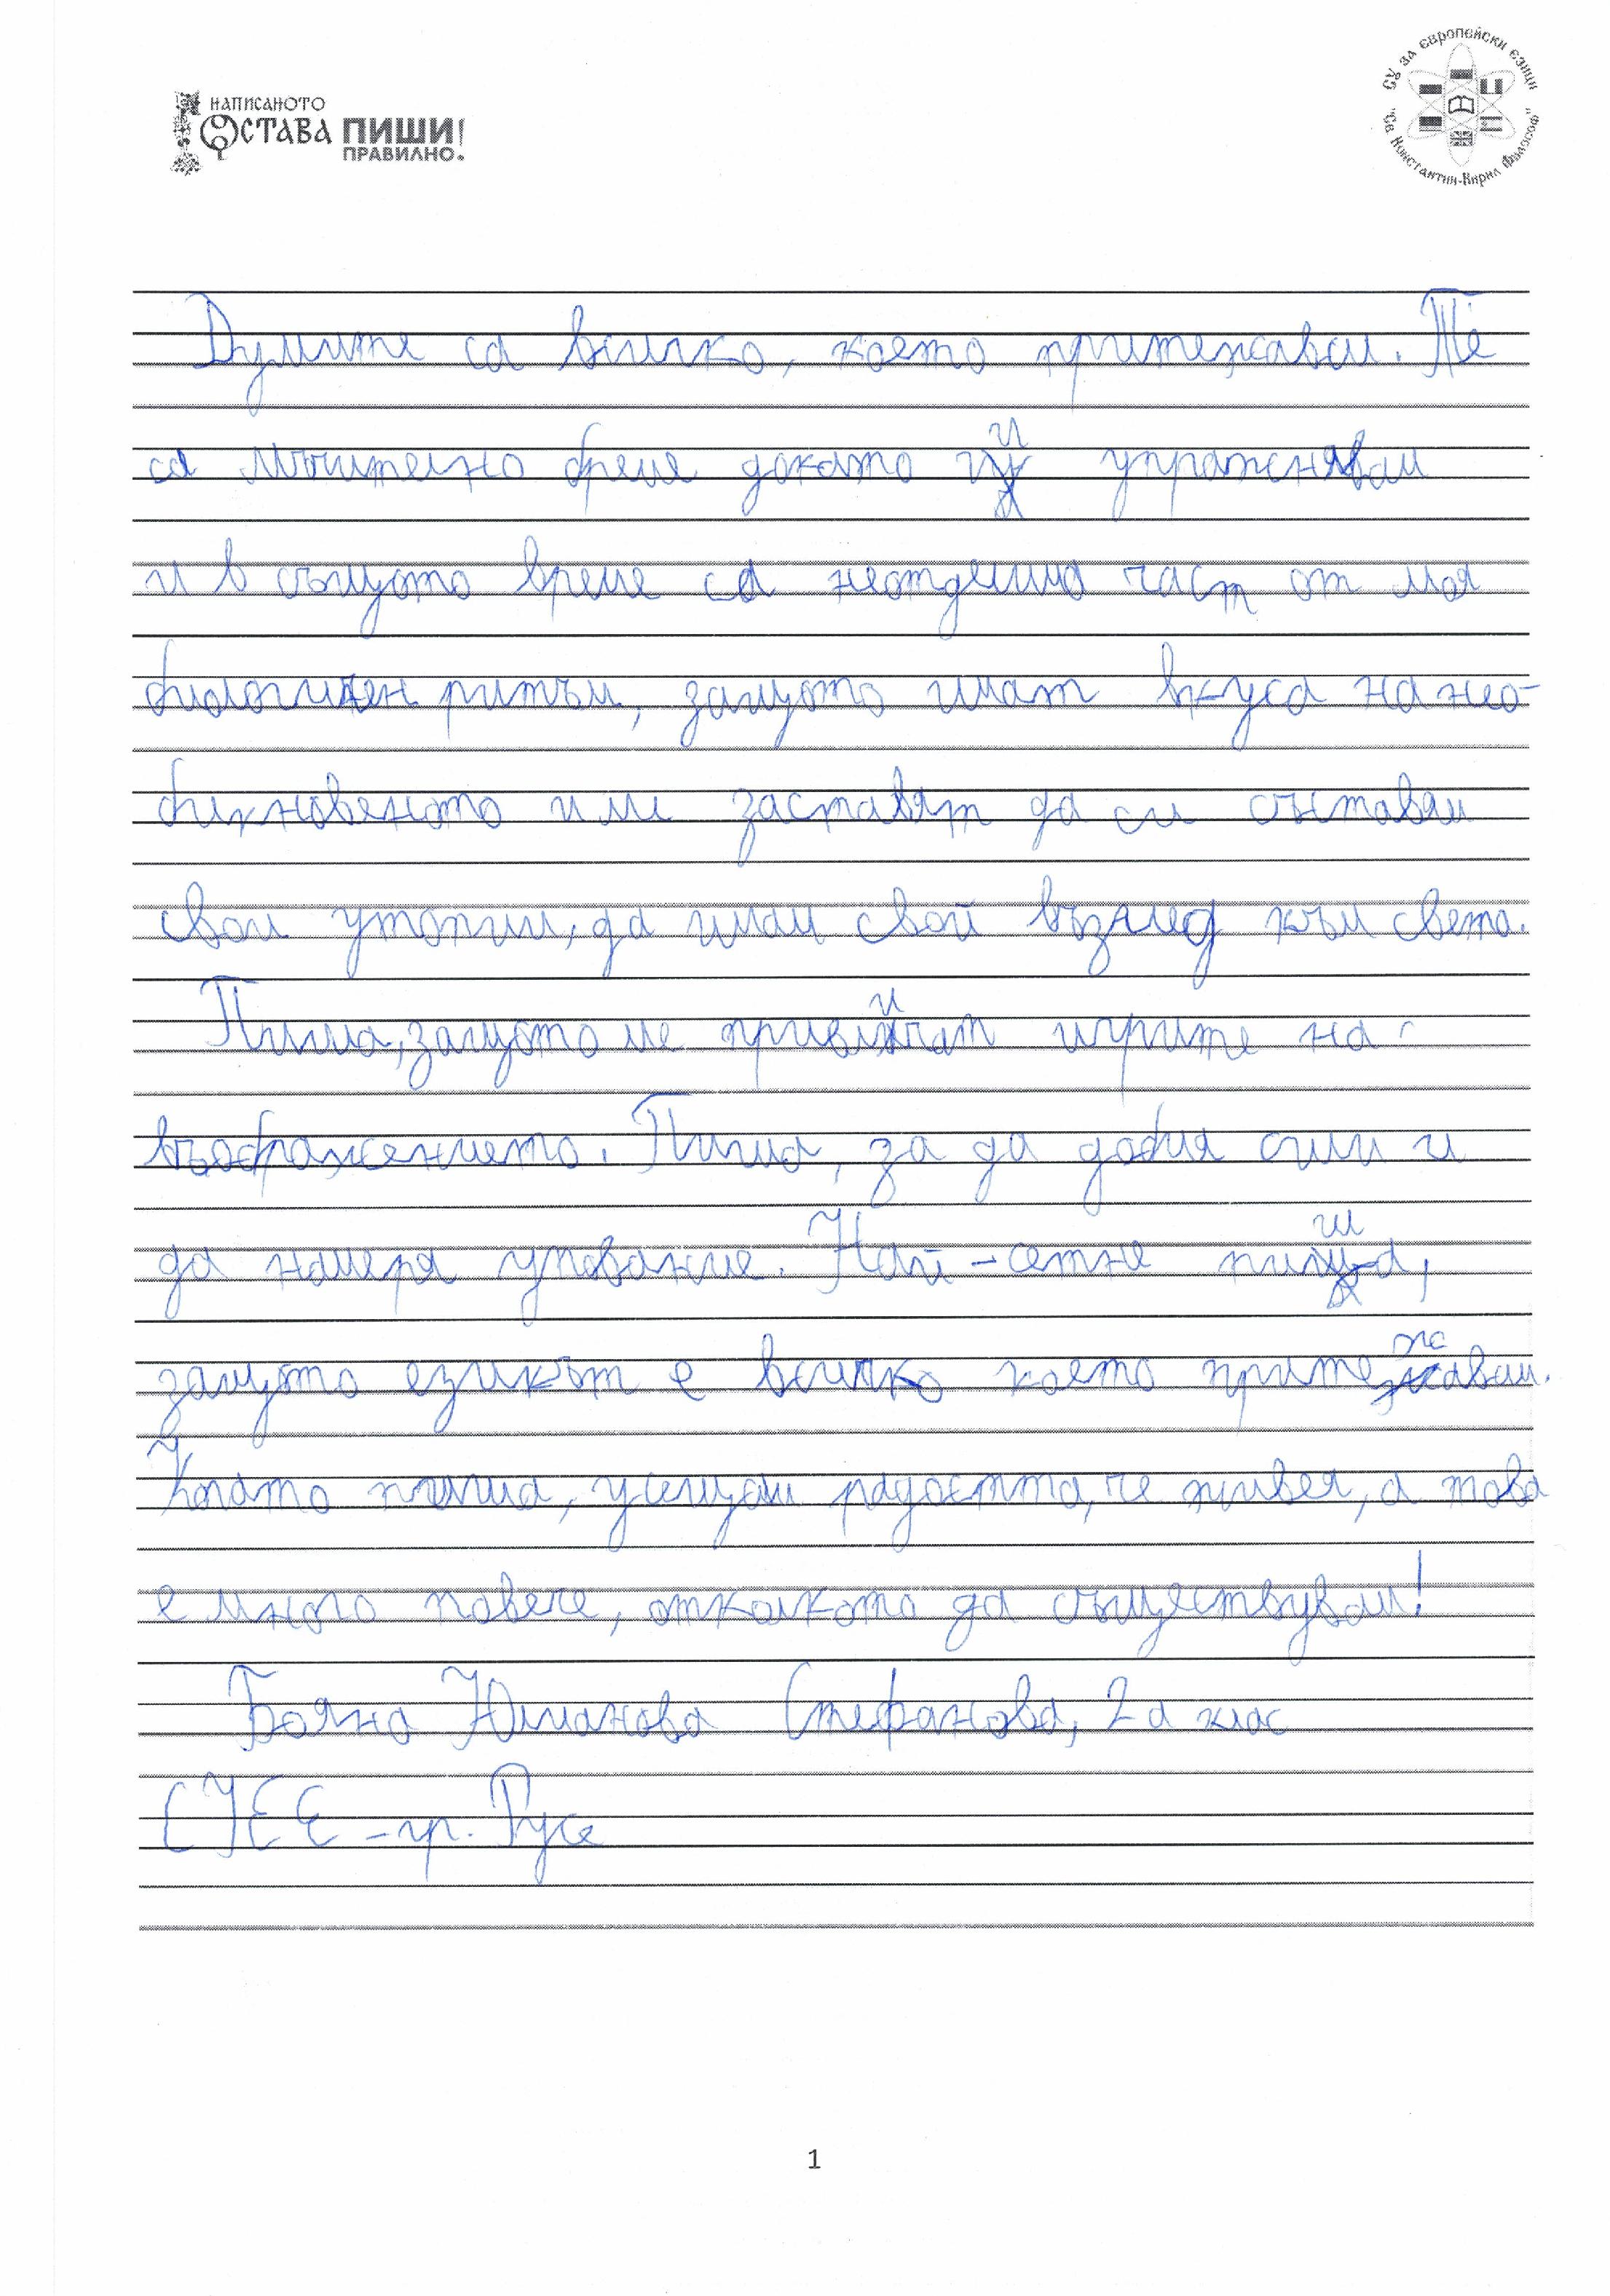 НАПИСАНОТО
ОСТАВА ПИШИ!
ПРАВИЛНО.
СУ за европейски езици
"Св. Константин-Кирил Философ"
Думите са всичко, което притежавам. Те
са мъчително бреме докато ги упражнявам
и в същото време са неотделима част от моя
биологичен ритъм, защото имат вкуса на нео-
бикновеното и ме заставят да си съставям
свои утопии, да имам свой възглед към света.
Пиша, защото ме привличат игрите на
въображението. Пиша, за да добия сили и
да намеря упование. Най-сетне пиша,
защото езикът е всичко което притежавам.
Когато пиша, усещам радостта, че живея, а това
е много повече, отколкото да съществувам!
Бояна Юлианова Стефанова, 2а клас
СУЕЕ - гр. Русе
1